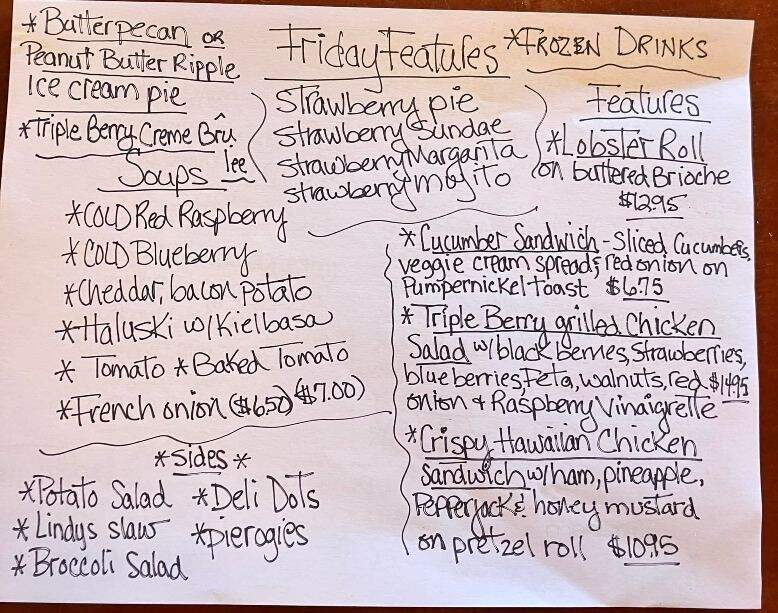 *Butterpecan OR
Peanut Butter Ripple
Ice cream pie
*Triple Berry Creme Brû
lee
Friday Features
Strawberry pie
Strawberry Sundae
Strawberry Margarita
strawberry mojito
*FROZEN DRINKS
Features
*Lobster Roll
on buttered Brioche
$12.95
Soups
*COLD Red Raspberry
*COLD Blueberry
*Cheddar, bacon potato
*Haluski w/Kielbasa
* Tomato *Baked Tomato
*French onion ($6.50) ($7.00)
*Sides*
*Potato Salad *Deli Dots
* Lindys slaw *pierogies
* Broccoli Salad
* Cucumber Sandwich - Sliced Cucumbers,
veggie cream spread & red onion on
Pumpernickel toast $6.75
* Triple Berry grilled Chicken
Salad w/blackberries, Strawberries,
blueberries, Feta, walnuts, red $14.95
onion + Raspberry Vinaigrette
*Crispy Hawaiian Chicken
Sandwich w/ham, pineapple,
Pepperjack & honey mustard
on pretzel roll $10.95